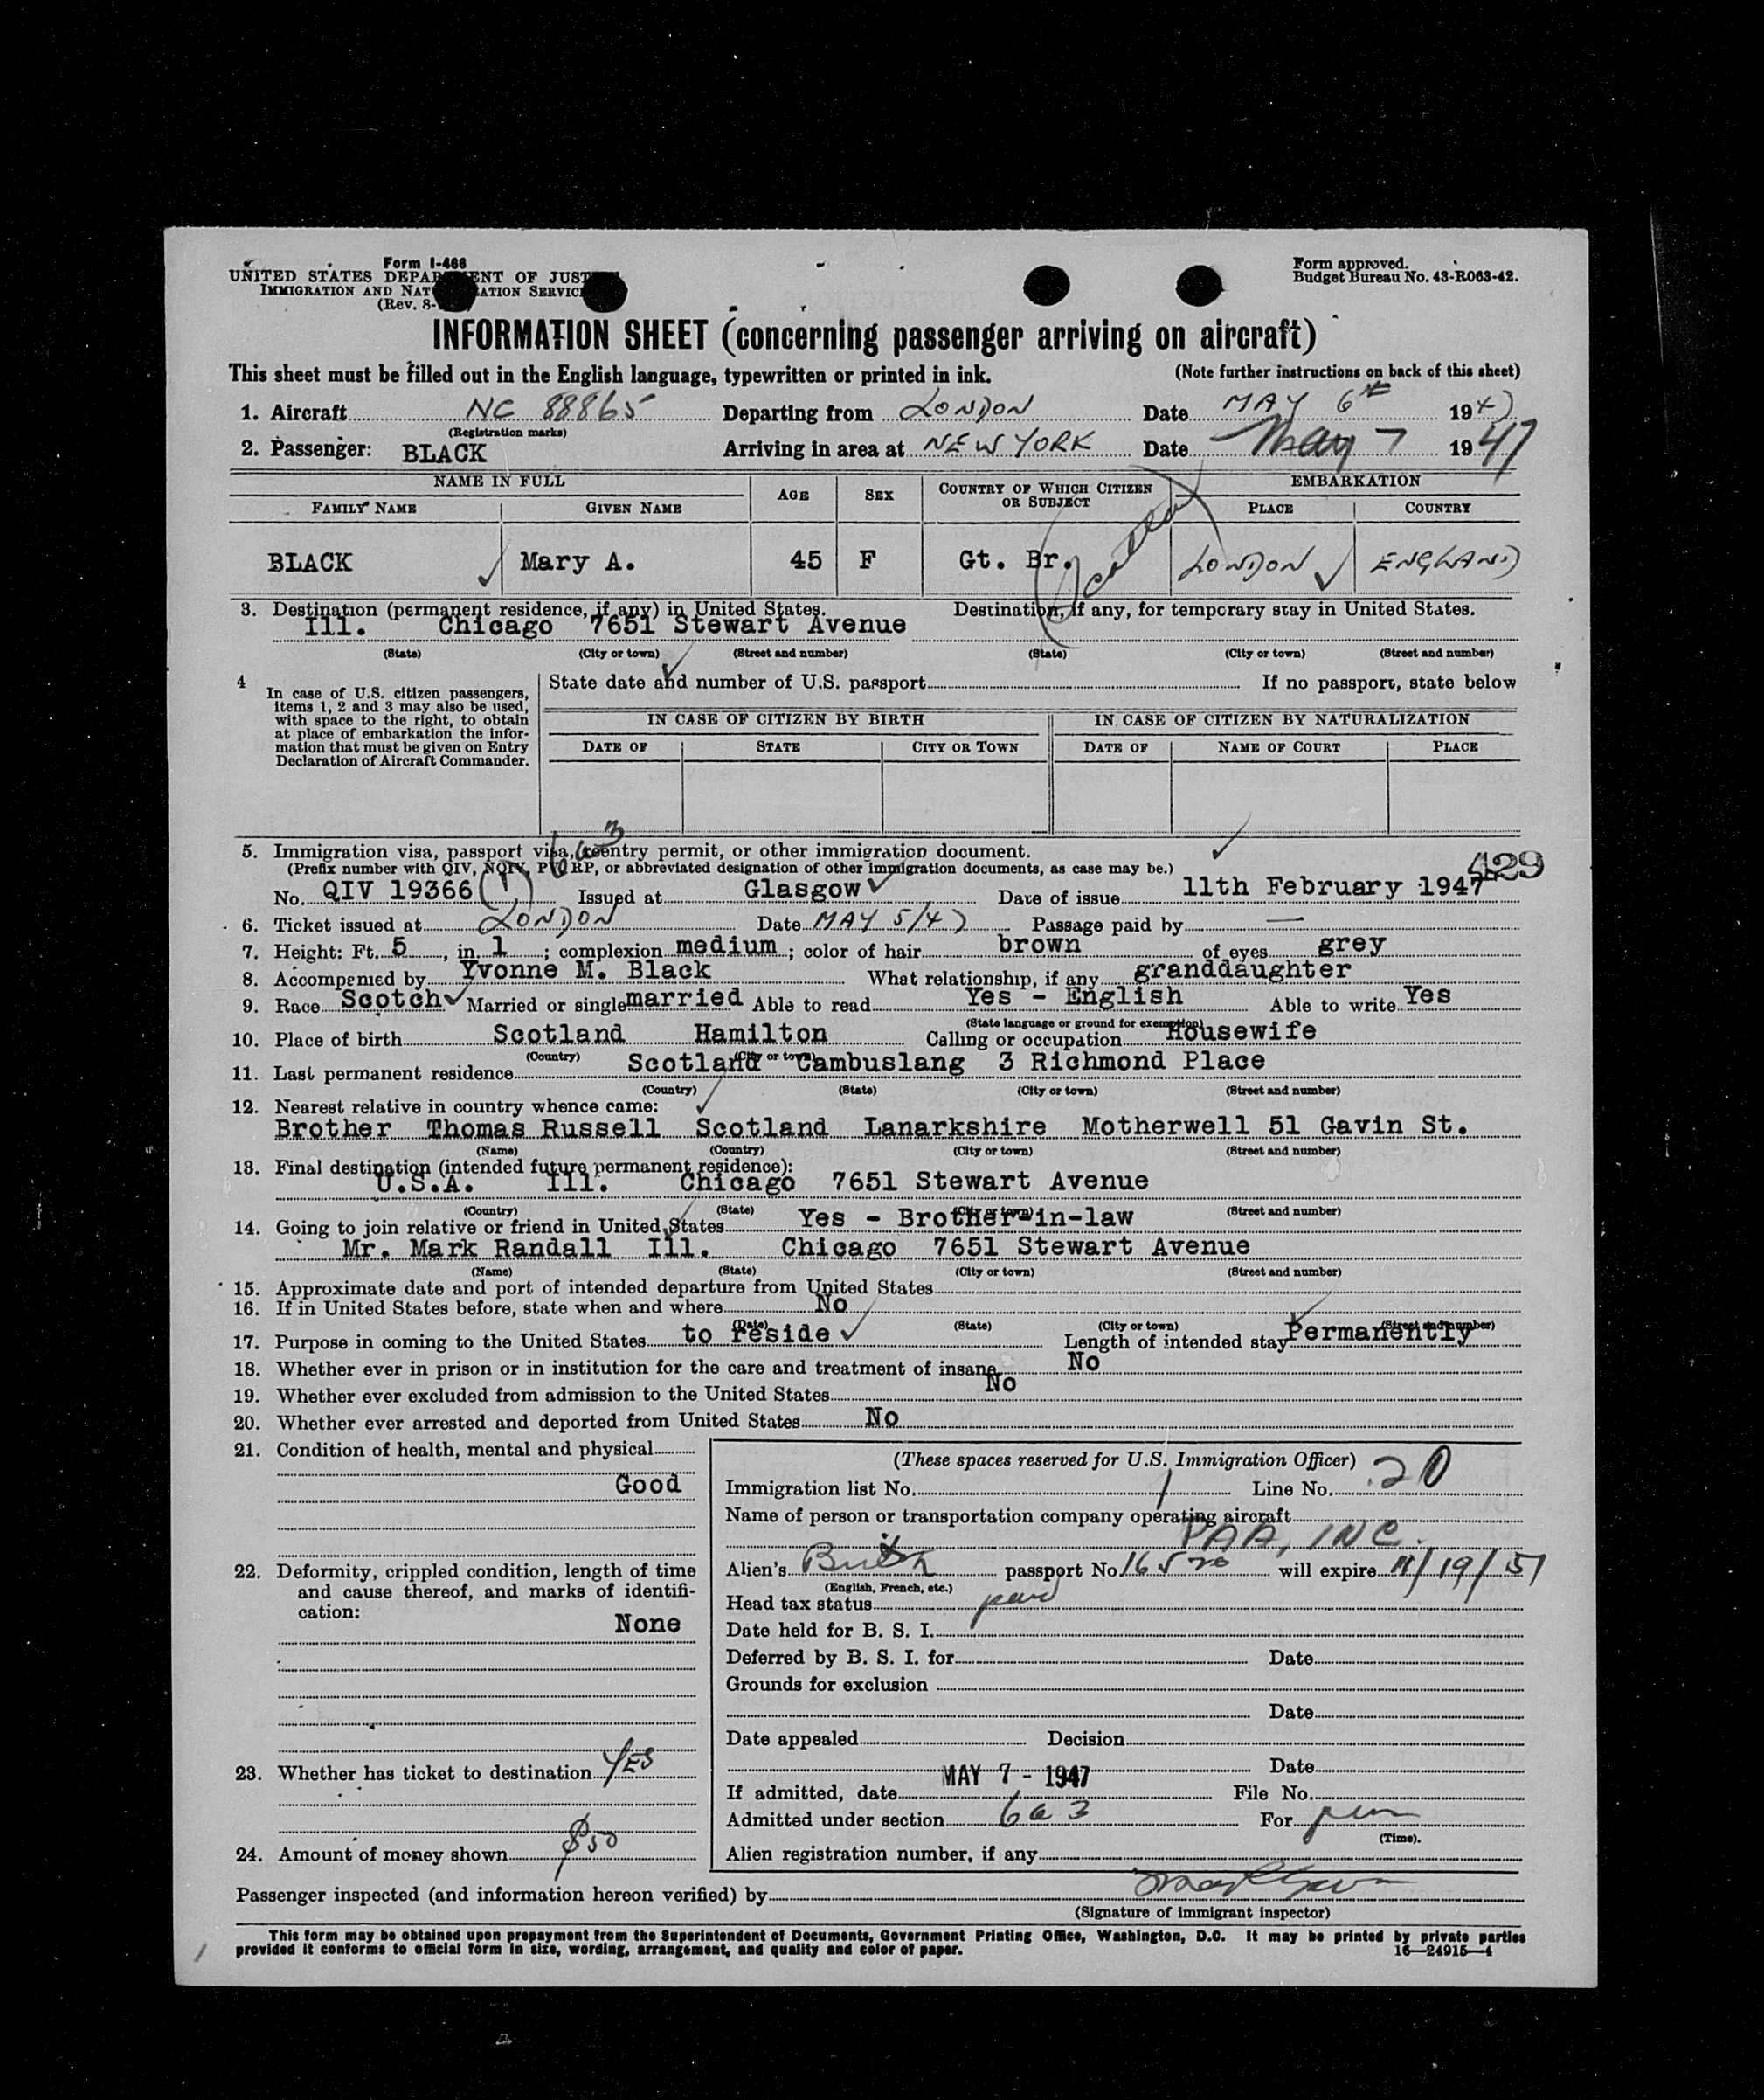 Form I-466
UNITED STATES DEPAR ENT OF JUST
IMMIGRATION AND NAT ATION SERVIC
(Rev. 8-
Form approved.
Budget Bureau No. 43-R063-42.
INFORMATION SHEET (concerning passenger arriving on aircraft)
This sheet must be filled out in the English language, typewritten or printed in ink. (Note further instructions on back of this sheet)
1. Aircraft NC 88865 Departing from LONDON Date MAY 6th 1947
(Registration marks)
2. Passenger: BLACK Arriving in area at NEW YORK Date May 7 1947
NAME IN FULL AGE SEX COUNTRY OF WHICH CITIZEN OR SUBJECT EMBARKATION
FAMILY NAME GIVEN NAME PLACE COUNTRY
BLACK Mary A. 45 F Gt. Br. (Scotland) LONDON ENGLAND
3. Destination (permanent residence, if any) in United States. Destination, if any, for temporary stay in United States.
Ill. Chicago 7651 Stewart Avenue
(State) (City or town) (Street and number) (State) (City or town) (Street and number)
4 In case of U.S. citizen passengers, items 1, 2 and 3 may also be used, with space to the right, to obtain at place of embarkation the information that must be given on Entry Declaration of Aircraft Commander.
State date and number of U.S. passport If no passport, state below
IN CASE OF CITIZEN BY BIRTH IN CASE OF CITIZEN BY NATURALIZATION
DATE OF STATE CITY OR TOWN DATE OF NAME OF COURT PLACE
6a3
5. Immigration visa, passport visa, reentry permit, or other immigration document.
(Prefix number with QIV, NQIV, PV, RP, or abbreviated designation of other immigration documents, as case may be.) 429
No. QIV 19366 (1) Issued at Glasgow Date of issue 11th February 1947
6. Ticket issued at LONDON Date MAY 5/47 Passage paid by —
7. Height: Ft. 5, in. 1; complexion medium; color of hair brown of eyes grey
8. Accompanied by Yvonne M. Black What relationship, if any granddaughter
9. Race Scotch Married or single married Able to read Yes - English Able to write Yes
(State language or ground for exemption)
10. Place of birth Scotland Hamilton Calling or occupation Housewife
(Country) (City or town)
11. Last permanent residence Scotland Cambuslang 3 Richmond Place
(Country) (State) (City or town) (Street and number)
12. Nearest relative in country whence came:
Brother Thomas Russell Scotland Lanarkshire Motherwell 51 Gavin St.
(Name) (Country) (City or town) (Street and number)
13. Final destination (intended future permanent residence):
U.S.A. Ill. Chicago 7651 Stewart Avenue
(Country) (State) (City or town) (Street and number)
14. Going to join relative or friend in United States Yes - Brother-in-law
Mr. Mark Randall Ill. Chicago 7651 Stewart Avenue
(Name) (State) (City or town) (Street and number)
15. Approximate date and port of intended departure from United States
16. If in United States before, state when and where No
(Date) (State) (City or town) (Street and number)
17. Purpose in coming to the United States to reside Length of intended stay Permanently
18. Whether ever in prison or in institution for the care and treatment of insane No
19. Whether ever excluded from admission to the United States No
20. Whether ever arrested and deported from United States No
21. Condition of health, mental and physical
Good
22. Deformity, crippled condition, length of time and cause thereof, and marks of identification:
None
23. Whether has ticket to destination YES
24. Amount of money shown $50
(These spaces reserved for U.S. Immigration Officer)
Immigration list No. 1 Line No. 20
Name of person or transportation company operating aircraft
PAA, INC.
Alien's British passport No. 16520 will expire 11/19/51
(English, French, etc.)
Head tax status paid
Date held for B. S. I.
Deferred by B. S. I. for Date
Grounds for exclusion
Date
Date appealed Decision
Date
If admitted, date MAY 7 - 1947 File No.
Admitted under section 6a3 For per
(Time).
Alien registration number, if any
Passenger inspected (and information hereon verified) by
(Signature of immigrant inspector)
This form may be obtained upon prepayment from the Superintendent of Documents, Government Printing Office, Washington, D.C. It may be printed by private parties
provided it conforms to official form in size, wording, arrangement, and quality and color of paper. 16—24915—4